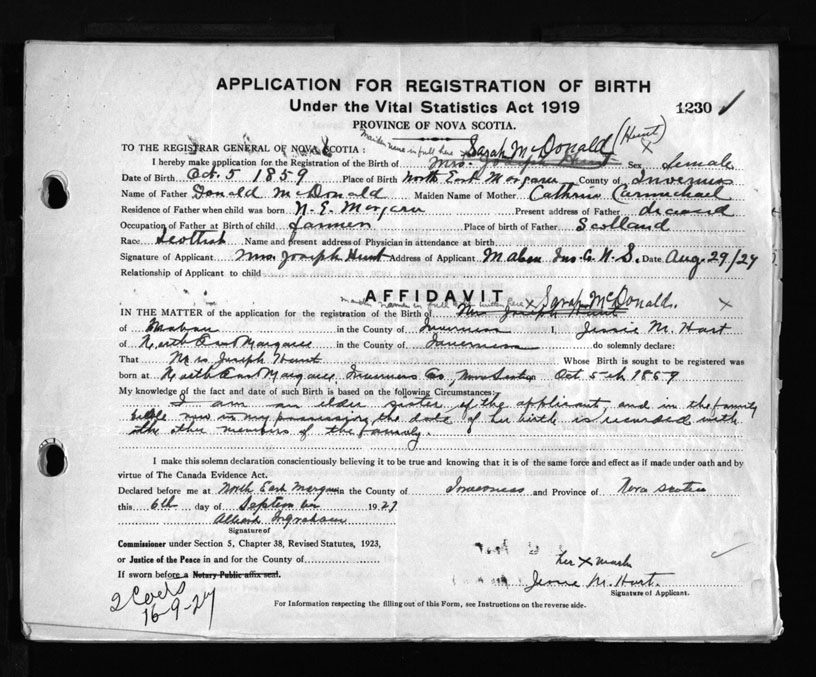 APPLICATION FOR REGISTRATION OF BIRTH
Under the Vital Statistics Act 1919
1230
PROVINCE OF NOVA SCOTIA.
Maiden name in full here Sarah McDonald (Hunt)
TO THE REGISTRAR GENERAL OF NOVA SCOTIA:
I hereby make application for the Registration of the Birth of Mrs. Joseph Hunt Sex female
Date of Birth Oct. 5 1859 Place of Birth North East Margaree County of Inverness
Name of Father Donald McDonald Maiden Name of Mother Cathrine Carmichael
Residence of Father when child was born N. E. Margaree Present address of Father deceased
Occupation of Father at Birth of child farmer Place of birth of Father Scotland
Race Scottish Name and present address of Physician in attendance at birth
Signature of Applicant Mrs Joseph Hunt Address of Applicant Mabou Inv. C. N. S. Date Aug. 29/27
Relationship of Applicant to child
AFFIDAVIT
maiden name in full here x Sarah McDonald. x
IN THE MATTER of the application for the registration of the Birth of Mrs Joseph Hunt
of Mabou in the County of Inverness I, Jessie M. Hart
of North East Margaree in the County of Inverness do solemnly declare:
That Mrs Joseph Hunt Whose Birth is sought to be registered was
born at North East Margaree, Inverness Co, Nova Scotia Oct 5th 1859
My knowledge of the fact and date of such Birth is based on the following Circumstances:
I am an elder sister of the applicant, and in the family
bible now in my possession the date of her birth is recorded with
the other members of the family.
I make this solemn declaration conscientiously believing it to be true and knowing that it is of the same force and effect as if made under oath and by
virtue of The Canada Evidence Act.
Declared before me at North East Margaree in the County of Inverness and Province of Nova Scotia
this 6th day of September 1927
Ingraham
Signature of
Commissioner under Section 5, Chapter 38, Revised Statutes, 1923,
or Justice of the Peace in and for the County of
her x mark
If sworn before a Notary Public affix seal.
Jessie M. Hart.
Signature of Applicant.
16-9-27
For Information respecting the filling out of this Form, see Instructions on the reverse side.